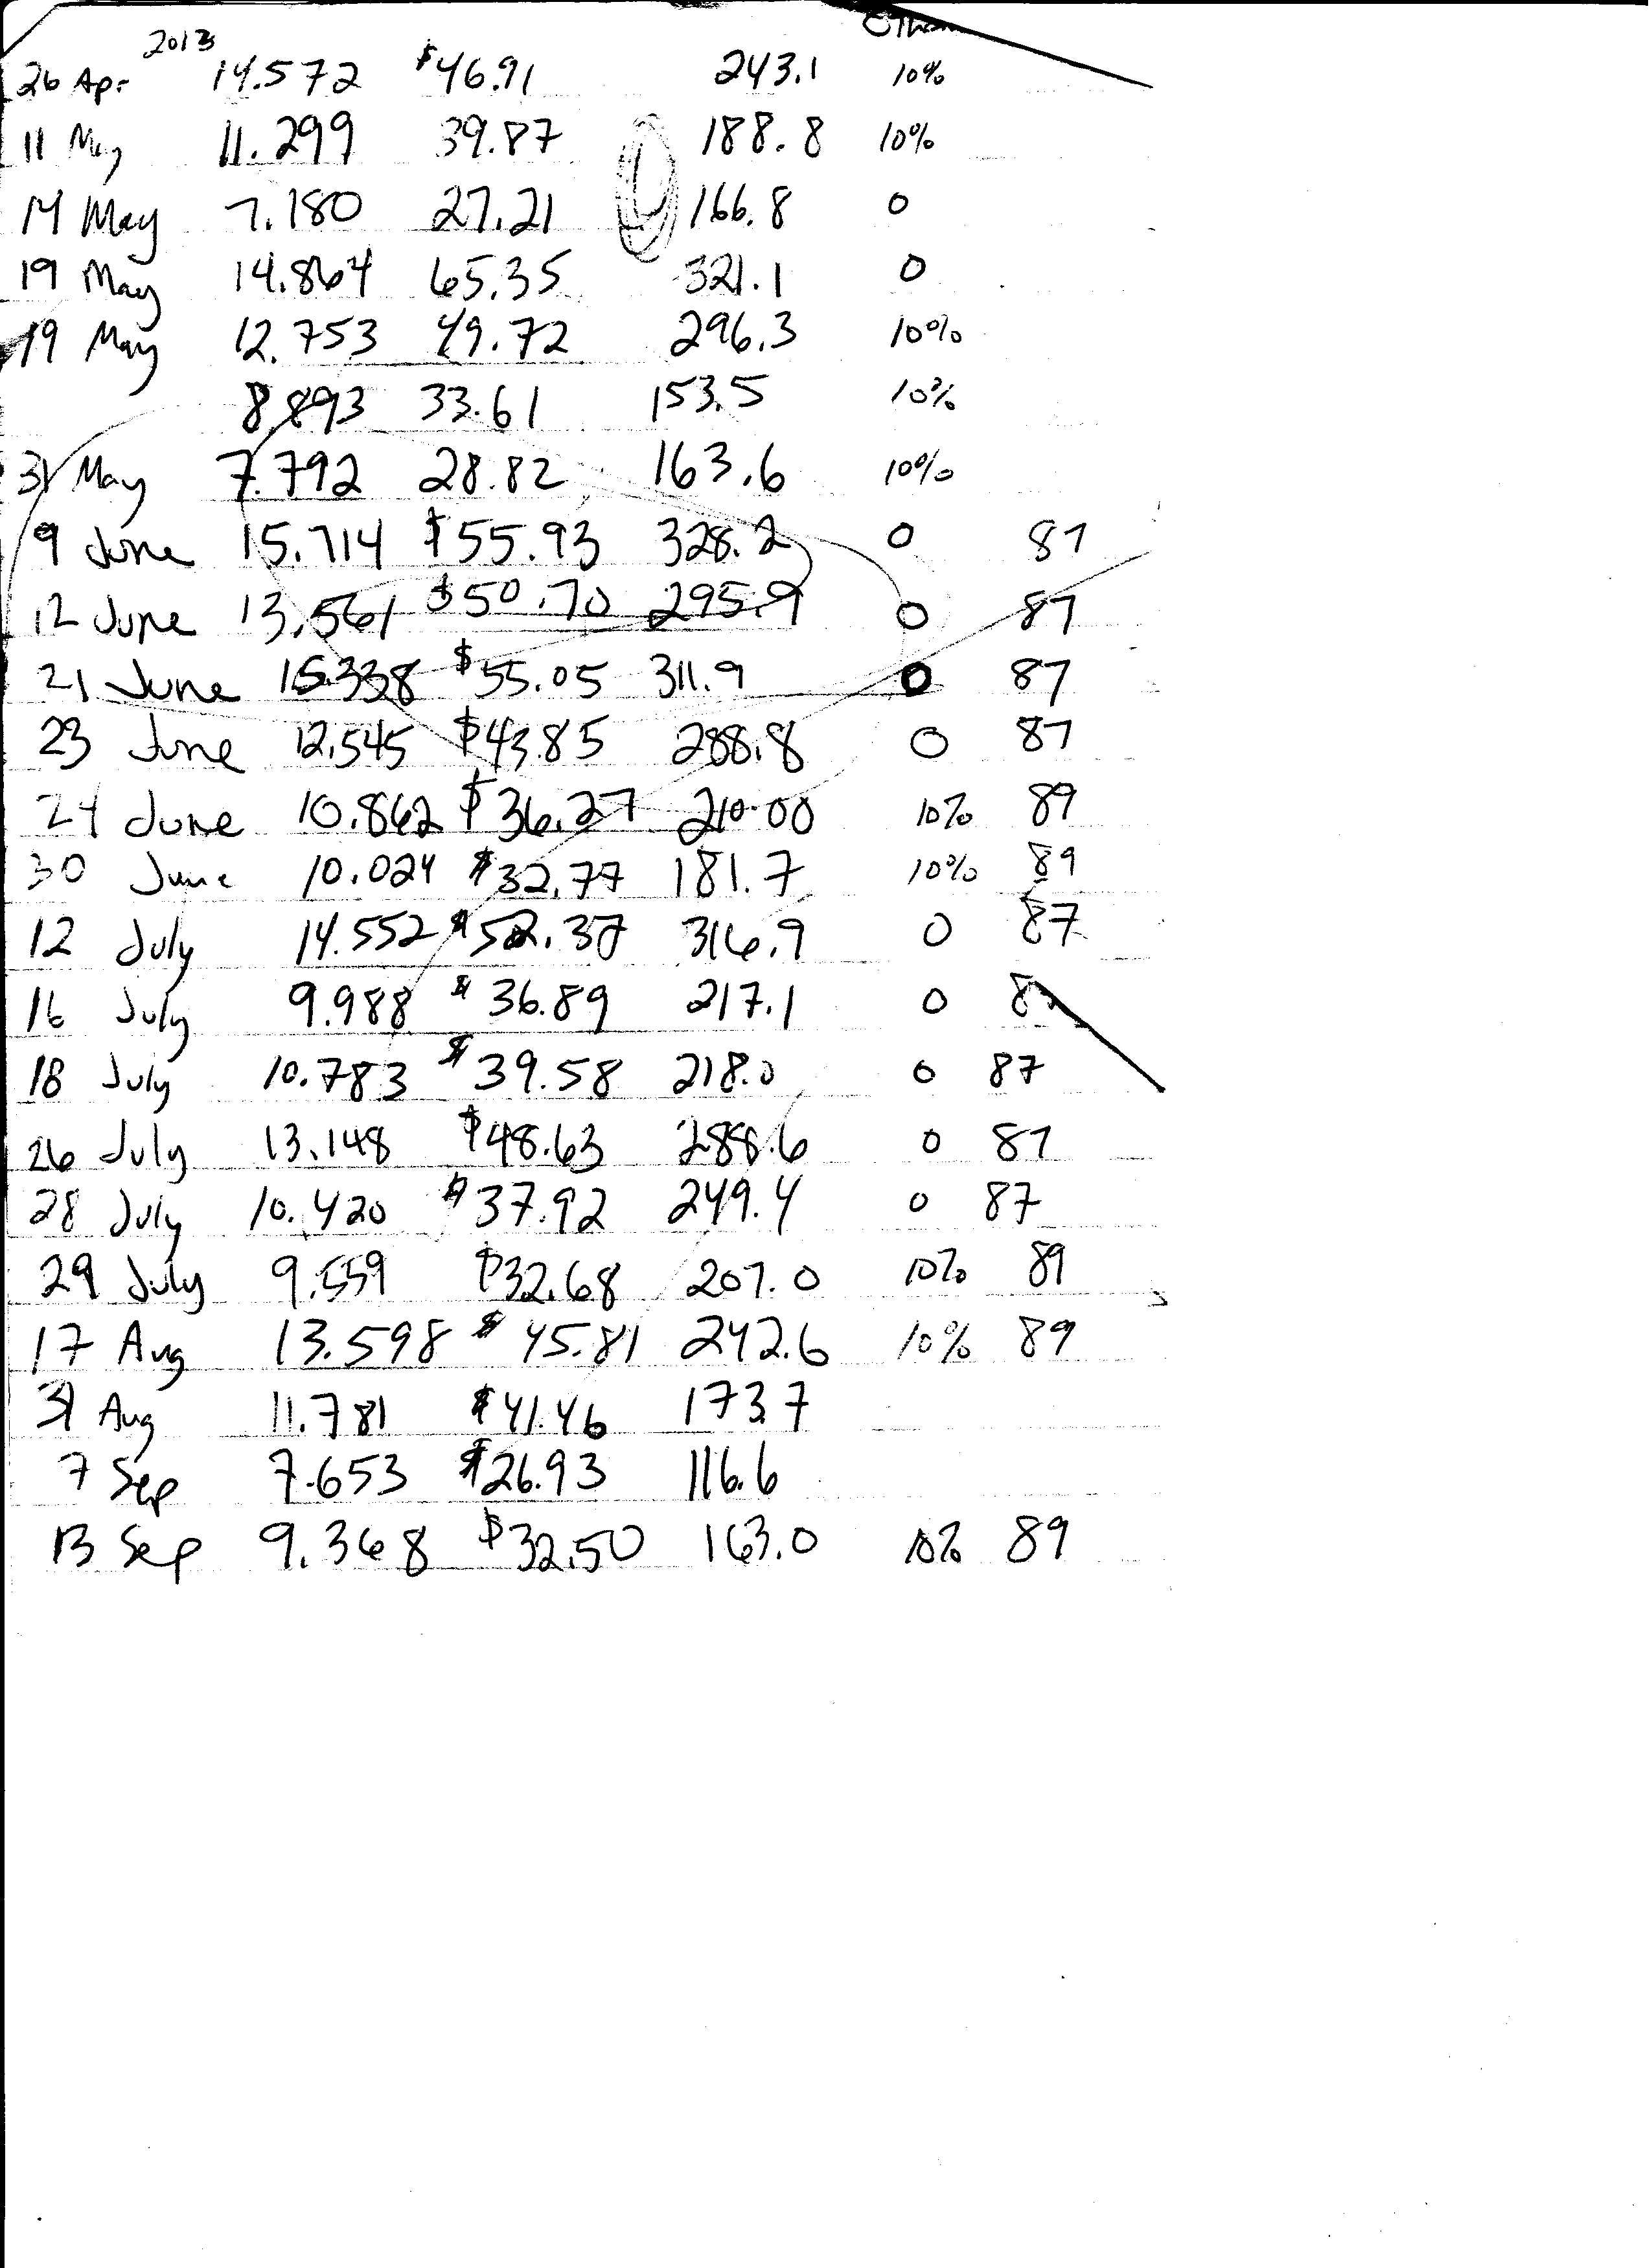 2013
26 Apr 14.572 $46.91 243.1 10%
11 May 11.299 39.87 188.8 10%
14 May 7.180 27.21 166.8 0
19 May 14.864 65.35 321.1 0
19 May 12.753 49.72 296.3 10%
8.893 33.61 153.5 10%
31 May 7.792 28.82 163.6 10%
9 June 15.714 $55.93 328.2 0 87
12 June 13.561 $50.70 295.9 0 87
21 June 15.338 $55.05 311.9 0 87
23 June 12.545 $43.85 288.8 0 87
24 June 10.862 $36.27 210.00 10% 89
30 June 10.024 $32.77 181.7 10% 89
12 July 14.552 $52.37 316.9 0 87
16 July 9.988 $36.89 217.1 0
18 July 10.783 $39.58 218.0 0 87
26 July 13.148 $48.63 288.6 0 87
28 July 10.420 $37.92 249.4 0 87
29 July 9.559 $32.68 207.0 10% 89
17 Aug 13.598 $45.81 242.6 10% 89
31 Aug 11.781 $41.46 173.7
7 Sep 7.653 $26.93 116.6
13 Sep 9.368 $32.50 163.0 10% 89